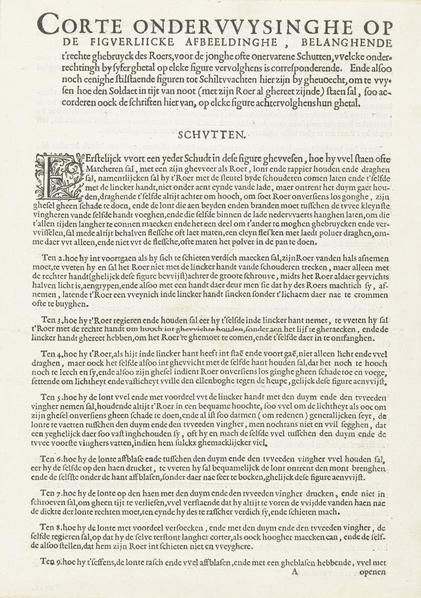 CORTE ONDERVVYSINGHE OP
DE FIGVERLIICKE AFBEELDINGHE, BELANGHENDE
t'rechte ghebruyck des Roers, voor de jonghe ofte onervarene Schutten, vvelcke onder-
rechtingh by syfer ghetal op elcke figure vervolghens is corresponderende. Ende alsoo
noch eenighe stilstaende figuren tot Schiltvvachten hier zijn by ghevoecht, om te vvy-
sen hoe den Soldaet in tijt van noot (met zijn Roer al ghereet zijnde) staen sal, soo ac-
corderen oock de schriften hier van, op elcke figure achtervolghens hun ghetal.
SCHVTTEN.
EErstelijck vvort een yeder Schudt in dese figure ghevvesen, hoe hy vvel staen ofte
Marcheren sal, met een zijn ghevveer als Roer, lont ende rappier houden ende draghen
sal, namentlijcken sal hy t'Roer met de sleutel byde schouderen comen laten ende t'selfde
met de lincker handt, niet onder aent eynde vande lade, maer ontrent het duym gaet hou-
den, draghende t'selfde altijt achter om hooch, om soet Roer onversiens los gonghe, zijn
ghesel gheen schade te doen, ende de lont die aen beyden enden branden moet tusschen de tvvee kleynste
vingheren vande selfde handt voeghen, ende die selfde binnen de lade nedervvaerts hanghen laten, om die
t'allen tijden langher te connen maecken ende het een deel om t'ander te moghen ghebruycken ende ver-
vvisselen, sal mede altijt behalven flessche oft laet maten, een cleyn flesken met laedt poluer draghen, om-
me daer vvt alleen, ende niet vvt de flessche, ofte maten het polver in de pan te doen.
Ten 2. hoe hy int voortgaen als hy sich te schieten verdich maecken sal, zijn Roer vanden hals afnemen
moet, te vveten hy en sal het Roer niet met de lincker handt vande schouderen trecken, maer alleen met
de rechter handt (ghelijck dese figure bevvijst) achter de groote schrouve, midts het Roer aldaer gevvichts
halven licht is, aengrypen, ende alsoo met een handt daer deur men sie dat hy des Roers machtich sy, af-
nemen, latende t'Roer een vveynich inde lincker handt sincken sonder t'lichaem daer nae te crommen
ofte te buyghen.
Ten 3. hoe hy t'Roer regieren ende houden sal eer hy t'selfde inde lincker hant nemet, te vveten hy sal
t'Roer met de rechte handt om hooch int ghevvichte houden, sonder aen het lijf te gheraecken, ende de
lincker handt ghereet hebben, om het Roer te ghemoet te comen, ende t'selfde daer in te ontfanghen.
Ten 4. hoe hy t'Roer, als hijt inde lincker hant heeft int staē ende voort gaē, niet alleen licht ende vvel
draghen, maer oock het selfde alsoo int ghevvicht met de selfde hant houden sal, dat het noch te hooch
noch te leech en sy, ende alsoo zijn ghesel indient Roer onversiens los ginghe gheen schade toe en voege,
settende om lichtheyt ende vasticheyt vville den ellenboghe tegen de heupe, gelijck dese figure aenvvijst.
Ten 5. hoe hy de lont vvel ende met voordeel vvt de lincker handt met den duym ende den tvveeden
vingher nemen sal, houdende altijt t'Roer in een bequame hoochte, soo vvel om de lichtheyt als ooc om
zijn ghesel onversiens gheen schade te doen, ende al ist soo datmen (om redenen) generalijcken seyt, de
lonte te vaetten tusschen den duym ende den tvveeden vingher, men nochtans niet en vvil segghen, dat
een yeghelijck daer soo vast inghehouden sy, oft hy en mach de selfde vvel tusschen den duym ende de
tvvee voorste vinghers vatten, indien hem sulckx ghemackelijcker viel.
Ten 6. hoe hy de lonte affblasē ende tusschen den duym ende den tvveeden vingher vvel houden sal,
eer hy de selfde op den haen drucket, te vveten hy sal bequamelijck de lont ontrent den mont brenghen
ende de selfste onder de hant affblasen, sonder daer nae seer te bocken, ghelijck dese figure aenvvijst.
Ten 7. hoe hy de lont op den haen met den duym ende den tvveeden vingher drucken, ende niet in
schroeven sal, om gheen tijt te verliesen, vvel verstaende dat hy altijt te voren de vvijdde vanden haen nae
de dickte der lonte rechten moet, ten eynde hy des te rasscher verdich sy, ende schieten mach.
Ten 8. hoe hy de lonte met voordeel versoecken, ende met den duym ende den tvveeden vingher, de
selfde regieren sal, op dat hy de selve terstont langher corter, als oock hoogher maecken can, ende de self-
de alsoo stellen, dat hem zijn Roer int schieten niet en vveyghere.
Ten 9. hoe hy t'seffens, de lonte rasch ende vvel affblasen, ende met een gheblasen hebbende, vvel met
A openen